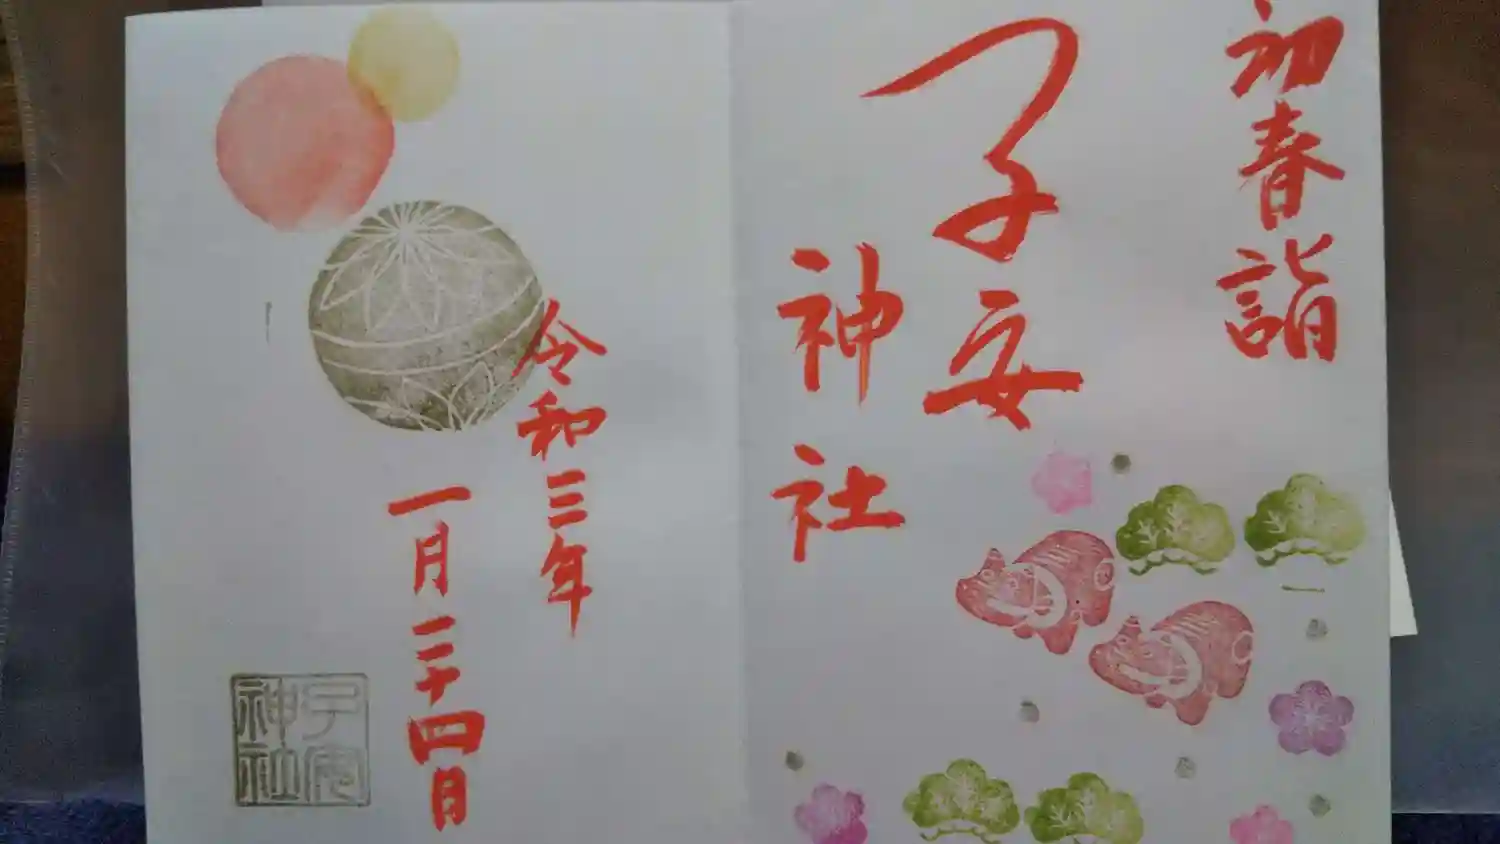 初春詣
子安
神社
令和三年
一月二十四日
子安
神社